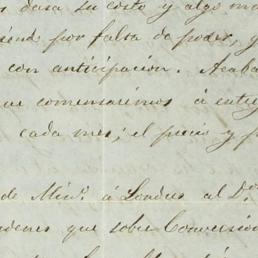 dara su costo y algo ma
por falta de poder, y
con anticipacion. Acaba
que comensarémos á entreg
cada mes; el precio y p
de Minº. á Londres al Dº.
ordenes que sobre Conversion